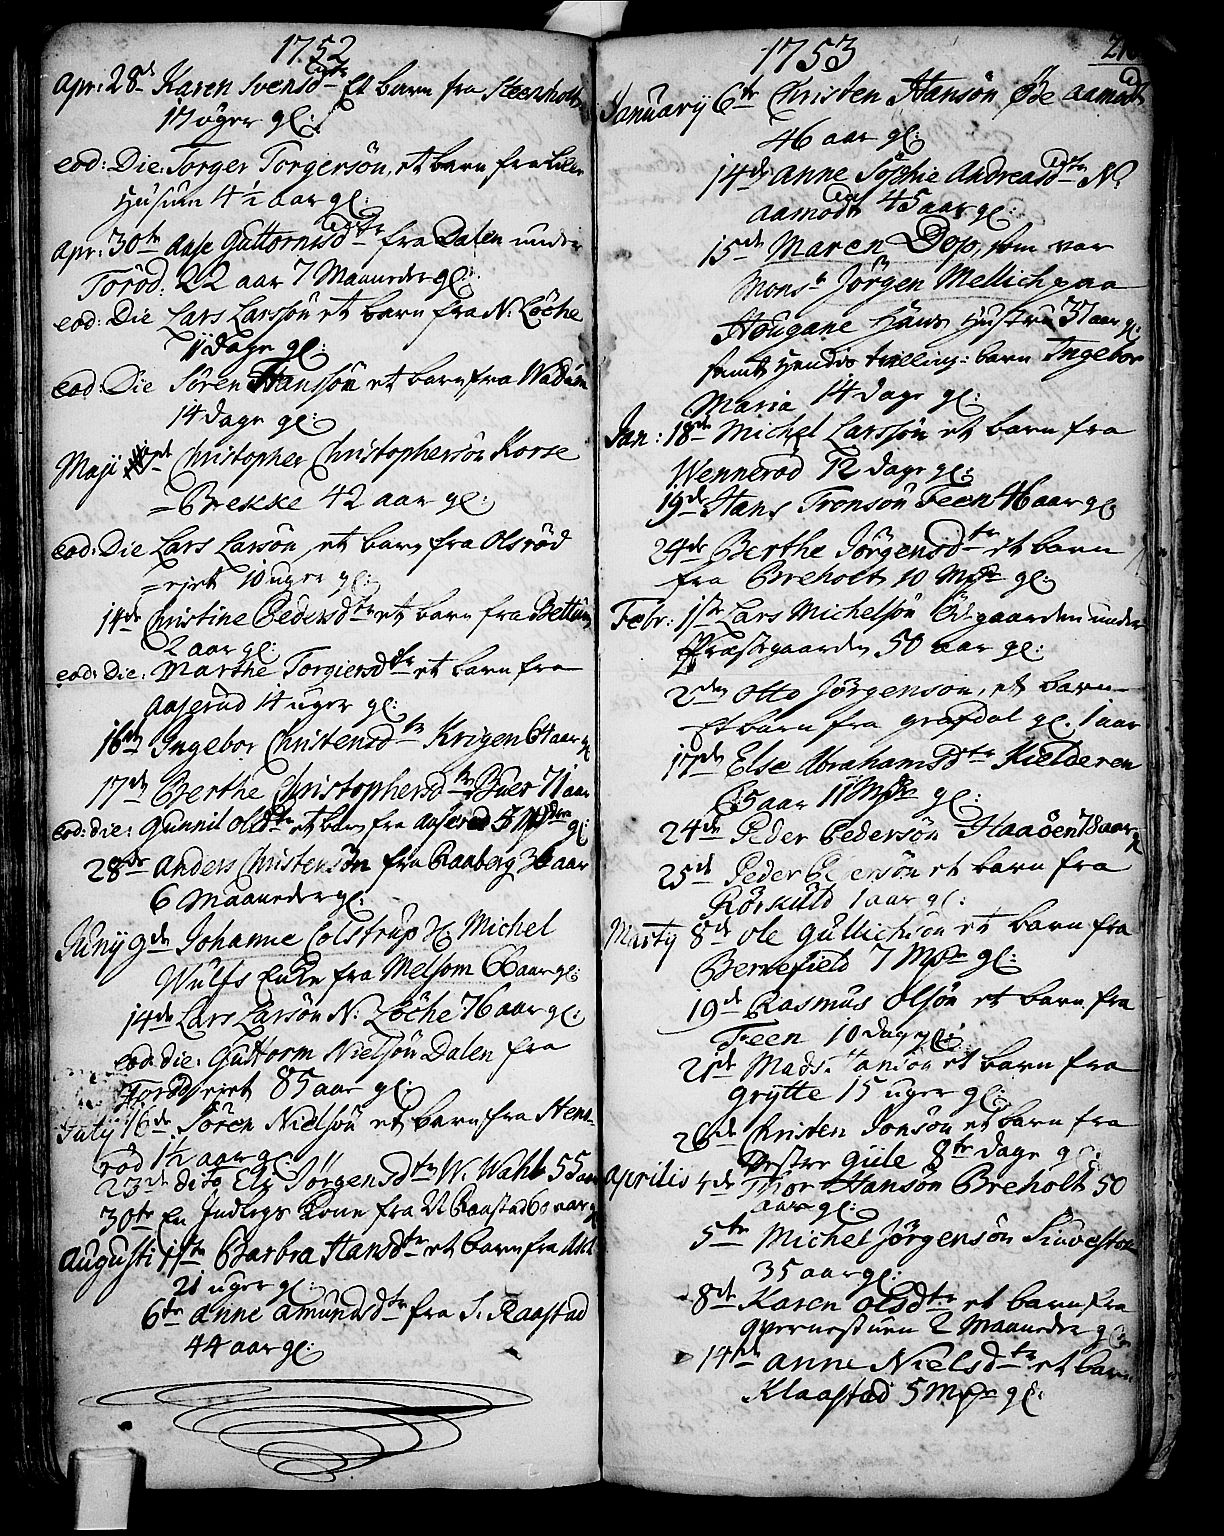 1752
Apr: 28de Karen Svensdtr Et barn fra Steensholt
17 uger gl:
eod: Die: Torger Torgersön, et barn fra Lille
Husum 4½ aar gl:
Apr: 30te Aase Guttormsdtr fra Dalen under
Toröd: 22 aar 7 Maaneder gl:
eod: Die Lars Larssön et barn fra N: Löche
11 dage gl:
eod: Die Sören Hanssön et barn fra Wadum
14 dage gl:
Maji Christopher Christophersön Korse
=Brekke 42 aar gl:
eod: Die Lars Larsön et barn fra Olsröd
=eiet 10 uger gl:
14de Christine Pedersdtr et barn fra Bettum
2 aar gl:
eod: Die: Marthe Torgiersdtr et barn fra
Aaserud 14 uger gl:
16de Ingebor Christensdtr Krigen 64 aar gl
17de Berthe Christophersdtr Buer 71 aar
eod: die: Gunnil Olsdtr et barn fra Aaserud 5 Mdr gl:
28de Anders Christensön fra Raaberg 36 aar
6 Maaneder gl:
Junij 9de Johanne Colstrup Michel
Wulfs Enke fra Melsom 66 aar gl:
14de Lars Larsön N: Löche 76 aar gl:
eod: die: Guttorm Nielsön Dalen fra
eiet 85 aar gl:
July 16de Sören Nielsön et barn fra Stens-
röd 1½ aar gl:
23de dito Eli Jörgensdtr W. Wahl 55 aar
30te En Indlegs Kone fra N Raastad 60 aar gl
Augusti 1ste Barbra Hansdtr et barn fra
21 uger gl:
6te Anne Amundsdtr fra S: Raastad
44 aar gl:
1753
Januarij 6te Christen Hansön Öde Aamodt
46 aar gl:
14de Anne Sophie Andreasdtr N:
Aamodt 45 aar gl:
15de Maren Dop, som var
Monsr Jörgen Mellich paa
Hougane Hans Hustru 37 aar gl:
samt Hendis tvilling: barn Ingebor
Maria 14 dage gl:
Jan: 18de Michel Larssön et barn fra
Wennerod 12 dage gl:
19de Hans Tronsön Feen 46 aar gl:
24de Berthe Jörgensdtr et barn
fra Breholt 10 Mdr gl:
Febr: 1ste Lars Michelsön Ödegaarden under
Præstegaarden 50 aar gl:
2den Otto Jörgenson, et barn
Et barn fra grafdal gl. 1 aar
17de Else Abrahamsdtr Kielderen
65 aar 11 Mdr gl:
24de Peder Pedersön Haaöen 78 aar gl
25de Peder et barn fra
Rörkuld 1 aar gl:
Martij 8de Ole Gullichsen et barn fra
Berrefield 7 Mdr gl:
19de Rasmus Olsön et barn fra
Feen 10 dage gl:
21de Mads Hansön et barn fra
Grytte 15 uger gl:
26de Christen Jonsön et barn fra
Vestre Gule 8te dage gl:
Aprilis 4de Thor Hansön Breholt 50
aar gl:
5te Michel Jörgensön
35 aar gl:
8de Karen Olsdtr et barn fra
Qvernestuen 2 Maaneder gl:
14de Anne Nielsdtr et barn
Klaastad 5 Mdr gl: